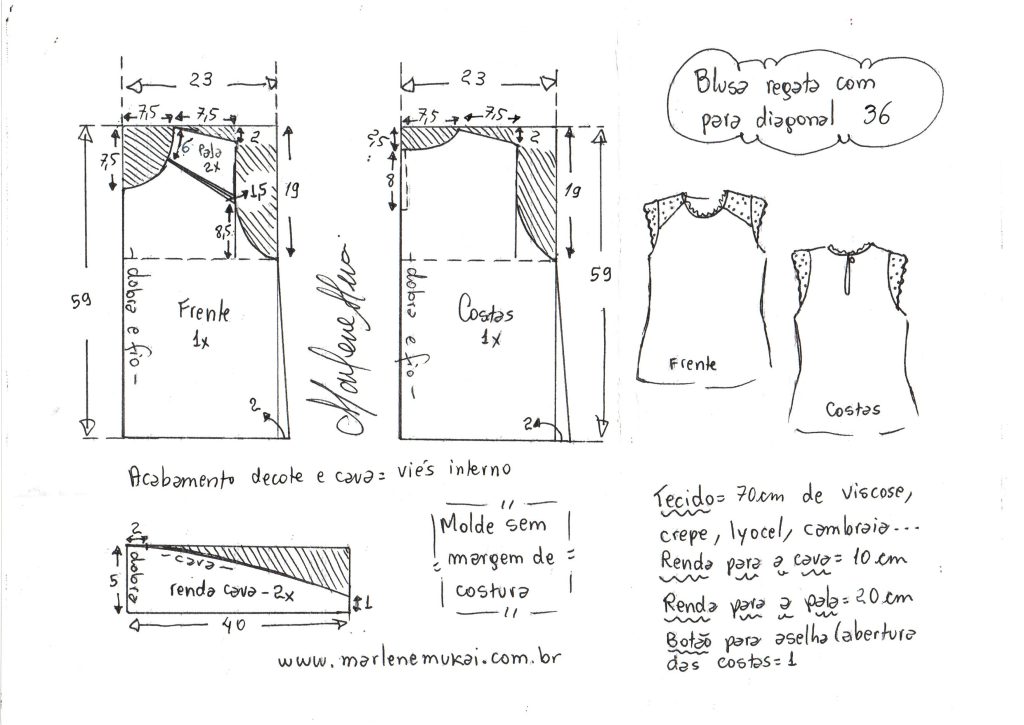 Blusa regata com
para diagonal 36
23
7,5 7,5
7,5
6 Pala
2x
2
1,5
19
8,5
59
dobra e fio
Frente
1x
2
Marlene Mukai
23
7,5 7,5
2,5
2
8
19
59
dobra e fio
Costas
1x
2
Frente
Costas
Acabamento decote e cava= viés interno
2
5
dobra
cava
renda cava-2x
1
40
Molde sem
margem de
costura
Tecido= 70cm de viscose,
crepe, lyocel, cambraia...
Renda para a cava= 10cm
Renda para a pala= 20cm
Botão para aselha (abertura
das costas=1
www.marlenemukai.com.br